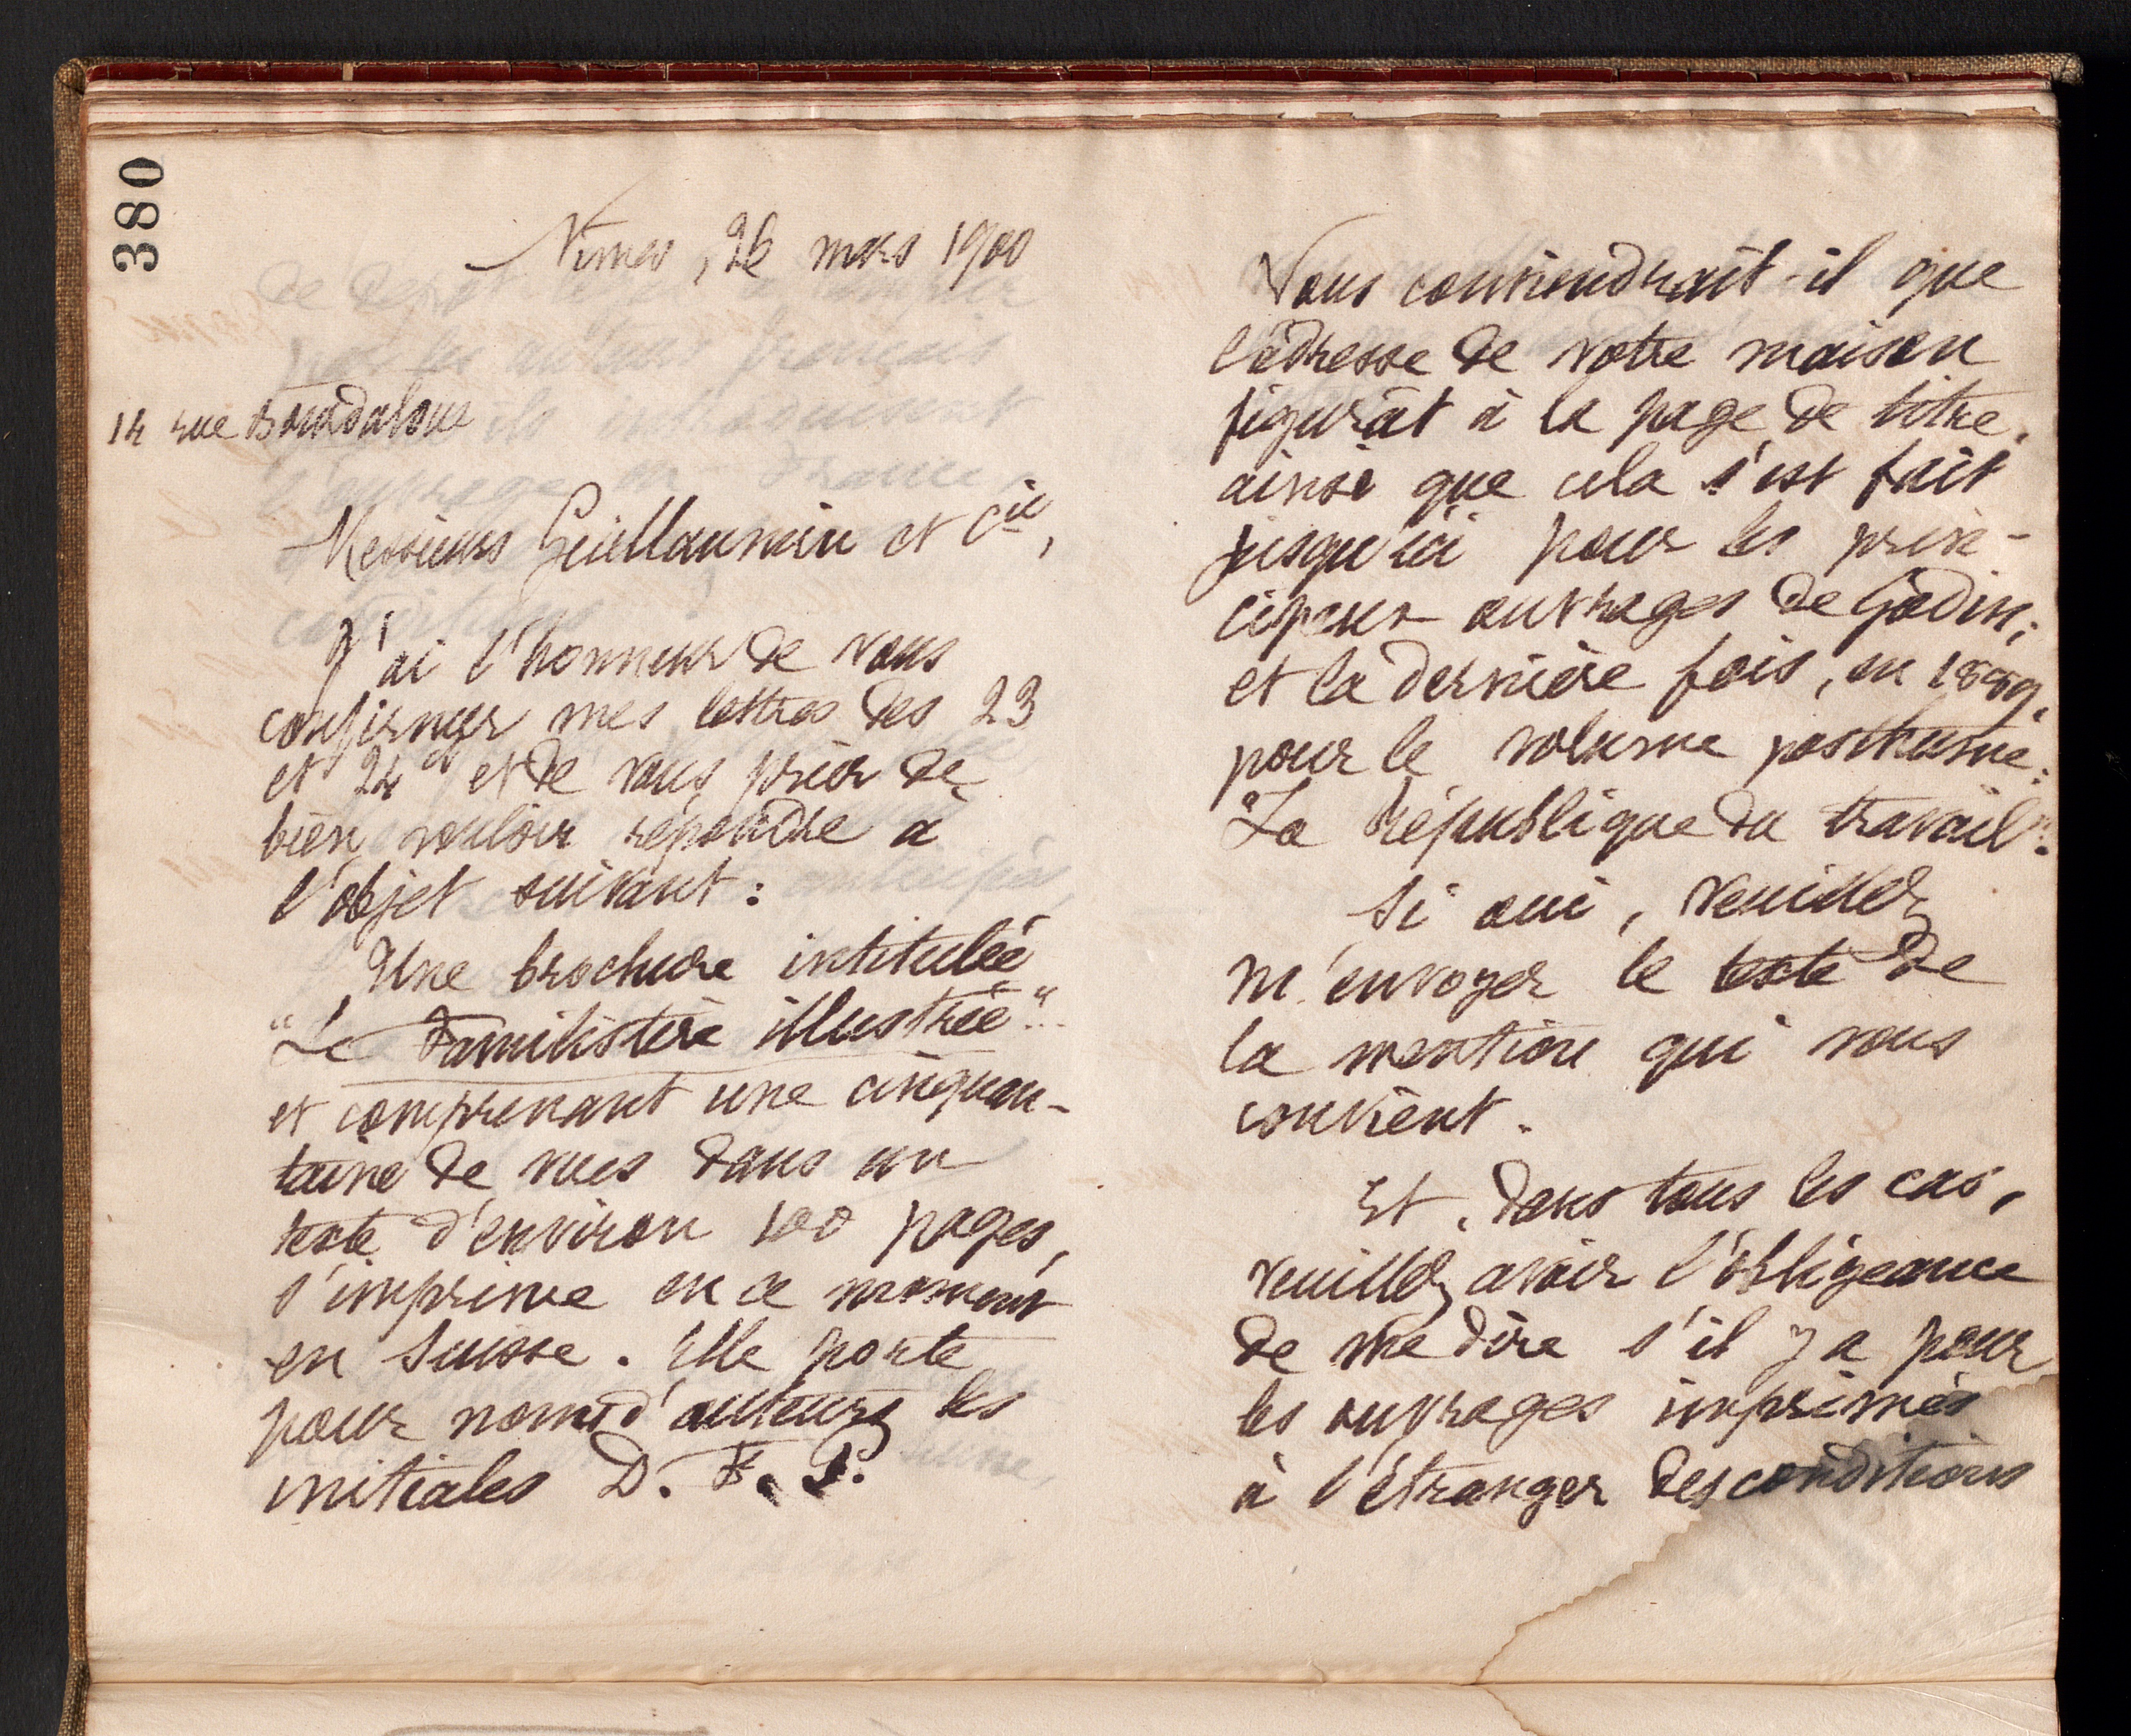 380
Nîmes, 26 mars 1900
14 rue Bourdaloue
Messieurs Guillaumin et Cie,
J'ai l'honneur de vous
confirmer mes lettres des 23
et 24 et de vous prier de
bien vouloir répondre à
l'objet suivant :
Une brochure intitulée
"Le Familistère illustré"
et comprenant une cinquan-
taine de vues dans un
texte d'environ 100 pages,
s'imprime en ce moment
en Suisse. Elle porte
pour nom d'auteurs les
initiales D. F. P.
Vous conviendrait-il que
l'adresse de votre maison
figurât à la page de titre,
ainsi que cela s'est fait
jusqu'ici pour les prin-
cipaux ouvrages de Godin;
et la dernière fois, en 1889,
pour le volume posthume :
"La République du travail".
Si oui, veuillez
m'envoyer le texte de
la mention qui vous
convient.
Et, dans tous les cas,
veuillez avoir l'obligeance
de me dire s'il y a pour
les ouvrages imprimés
à l'étranger des conditions